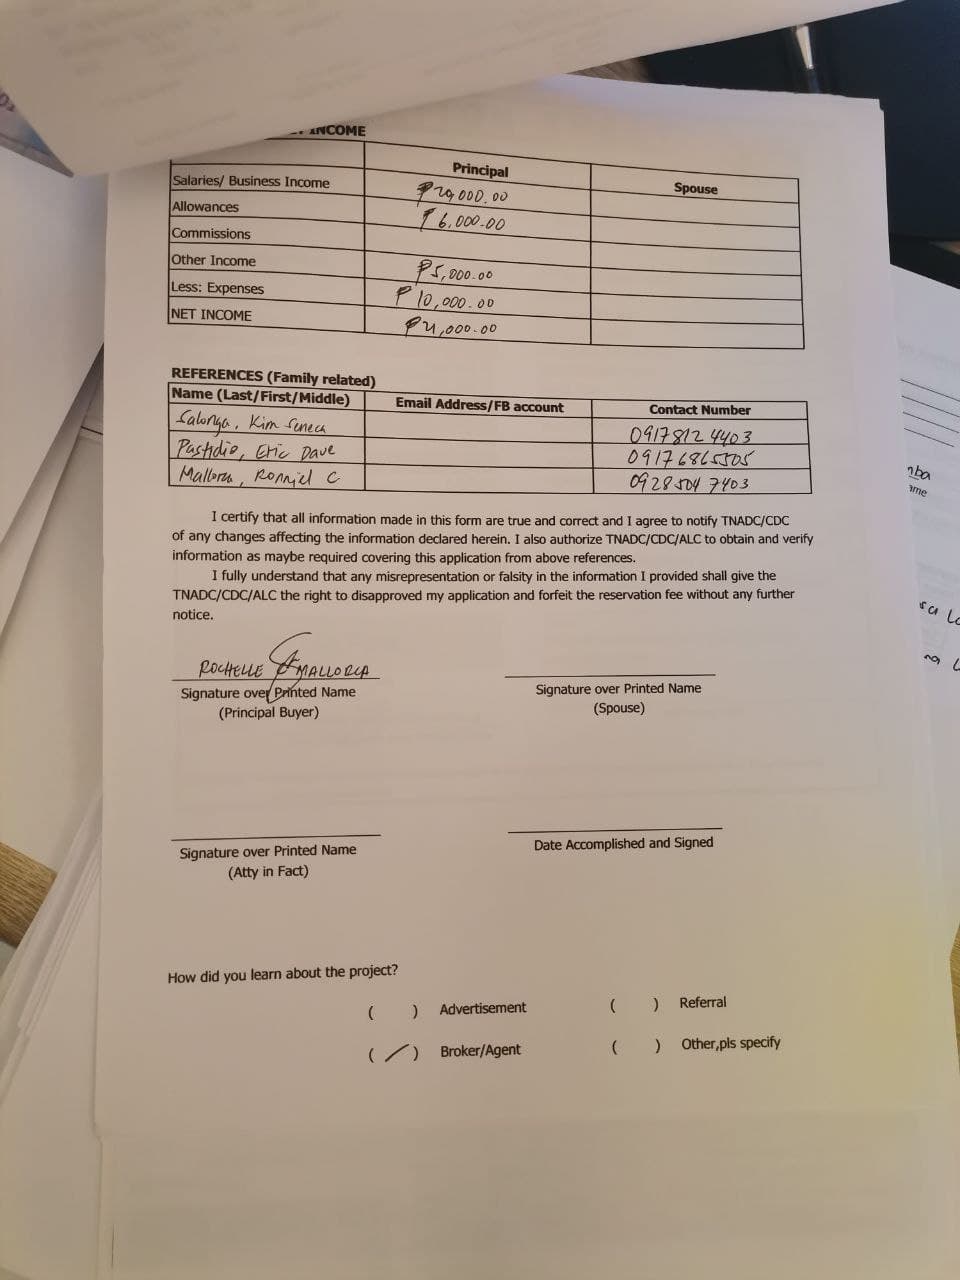 INCOME
Principal Spouse
Salaries/ Business Income
Allowances ₱6,000.00
Commissions
Other Income ₱5,000.00
Less: Expenses ₱10,000.00
NET INCOME
REFERENCES (Family related)
Name (Last/First/Middle) Email Address/FB account Contact Number
Salonga, Kim Seneca 0917 812 4403
Pastidio, Eric Dave 0917 6865505
Mallorca, Ronnjel C 0928 504 7403
I certify that all information made in this form are true and correct and I agree to notify TNADC/CDC
of any changes affecting the information declared herein. I also authorize TNADC/CDC/ALC to obtain and verify
information as maybe required covering this application from above references.
I fully understand that any misrepresentation or falsity in the information I provided shall give the
TNADC/CDC/ALC the right to disapproved my application and forfeit the reservation fee without any further
notice.
ROCHELLE MALLORCA
Signature over Printed Name Signature over Printed Name
(Principal Buyer) (Spouse)
Signature over Printed Name Date Accomplished and Signed
(Atty in Fact)
How did you learn about the project?
( ) Advertisement ( ) Referral
( / ) Broker/Agent ( ) Other,pls specify